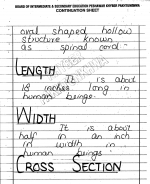 BOARD OF INTERMEDIATE & SECONDARY EDUCATION PESHAWAR KHYBER PAKHTUNKHWA
CONTINUATION SHEET
oval shaped hollow
structure known
as spinal cord.
LENGTH
It is about
18 inches long in
human beings.
WIDTH
It is about
half in an inch
in width in
human beings
CROSS SECTION